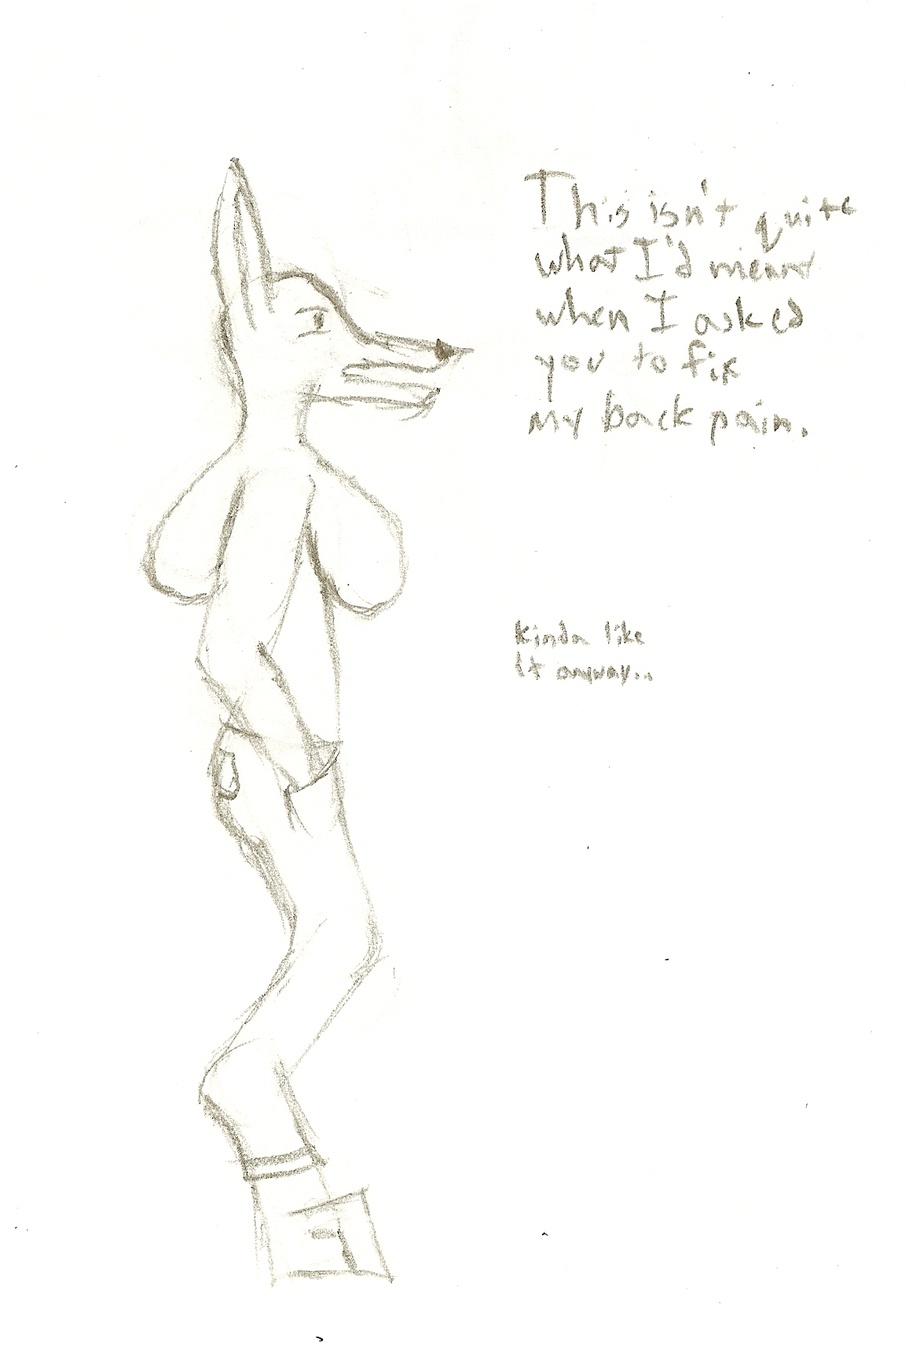 This isn't quite
what I'd meant
when I asked
you to fix
my back pain.
Kinda like
it anyway..